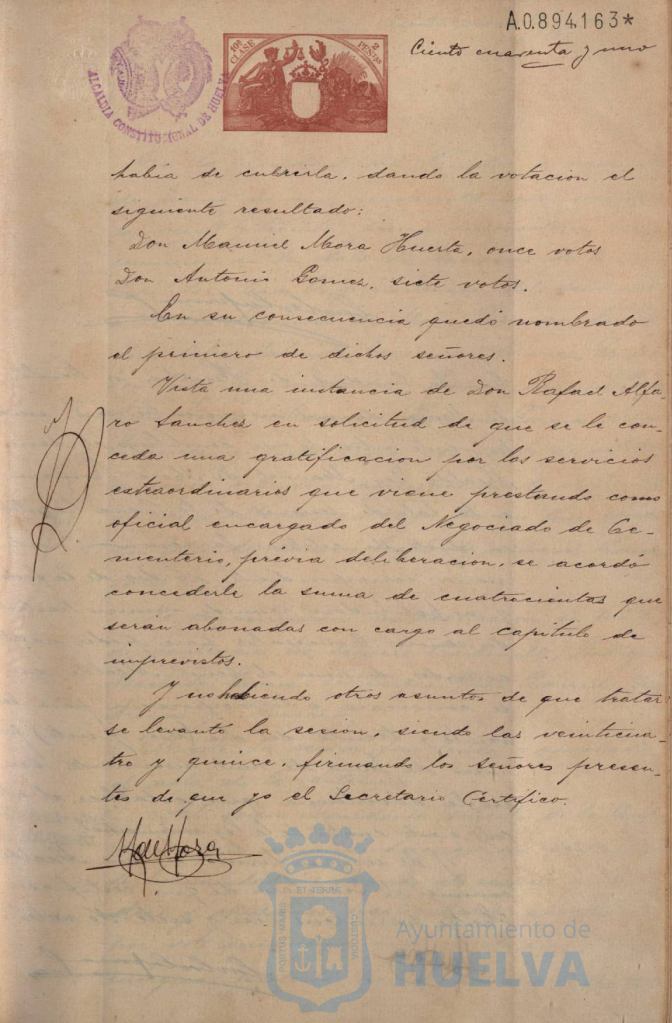 A.0.894,163*
Ciento cuarenta y uno
ALCALDIA CONSTITUCIONAL DE HUELVA
10ª CLASE
2 PESETAS
había de cubrirla, dando la votacion el
siguiente resultado:
Don Manuel Mora Huerta, once votos
Don Antonio Gomez, siete votos.
En su consecuencia quedó nombrado
el primero de dichos señores.
Vista una instancia de Don Rafael Alfa-
ro Sanchez en solicitud de que se le con-
ceda una gratificacion por los servicios
extraordinarios que viene prestando como
oficial encargado del Negociado de Ce-
menterio, prévia deliberacion, se acordó
concederle la suma de cuatrocientas que
serán abonadas con cargo al capitulo de
imprevistos.
Y no habiendo otros asuntos de que tratar
se levantó la sesion, siendo las veinticua-
tro y quince, firmando los señores presen-
tes de que yo el Secretario Certifico.
PORTUS MARIS
ET TERRÆ
CUSTODIA
Ayuntamiento de
HUELVA